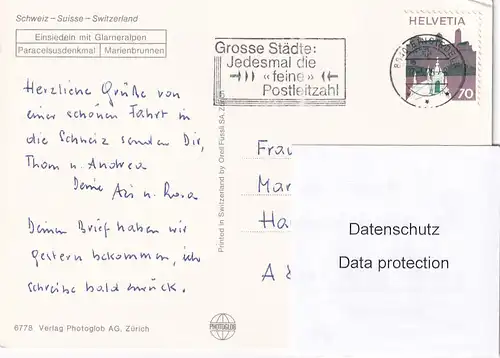 Schweiz – Suisse – Switzerland
Einsiedeln mit Glarneralpen
Paracelsusdenkmal Marienbrunnen
Grosse Städte:
Jedesmal die
«feine»
Postleitzahl
HELVETIA
70
Herzliche Grüße von
einer schönen Fahrt in
die Schweiz senden Dir,
Thom u. Andrea
Deine u. Rosa
Deinen Brief haben wir
gestern bekommen, ich
schreibe bald zurück.
Printed in Switzerland by Orell Füssli SA, Zürich
Frau
Mar
Ha
A
Datenschutz
Data protection
6778 Verlag Photoglob AG, Zürich
PHOTOGLOB